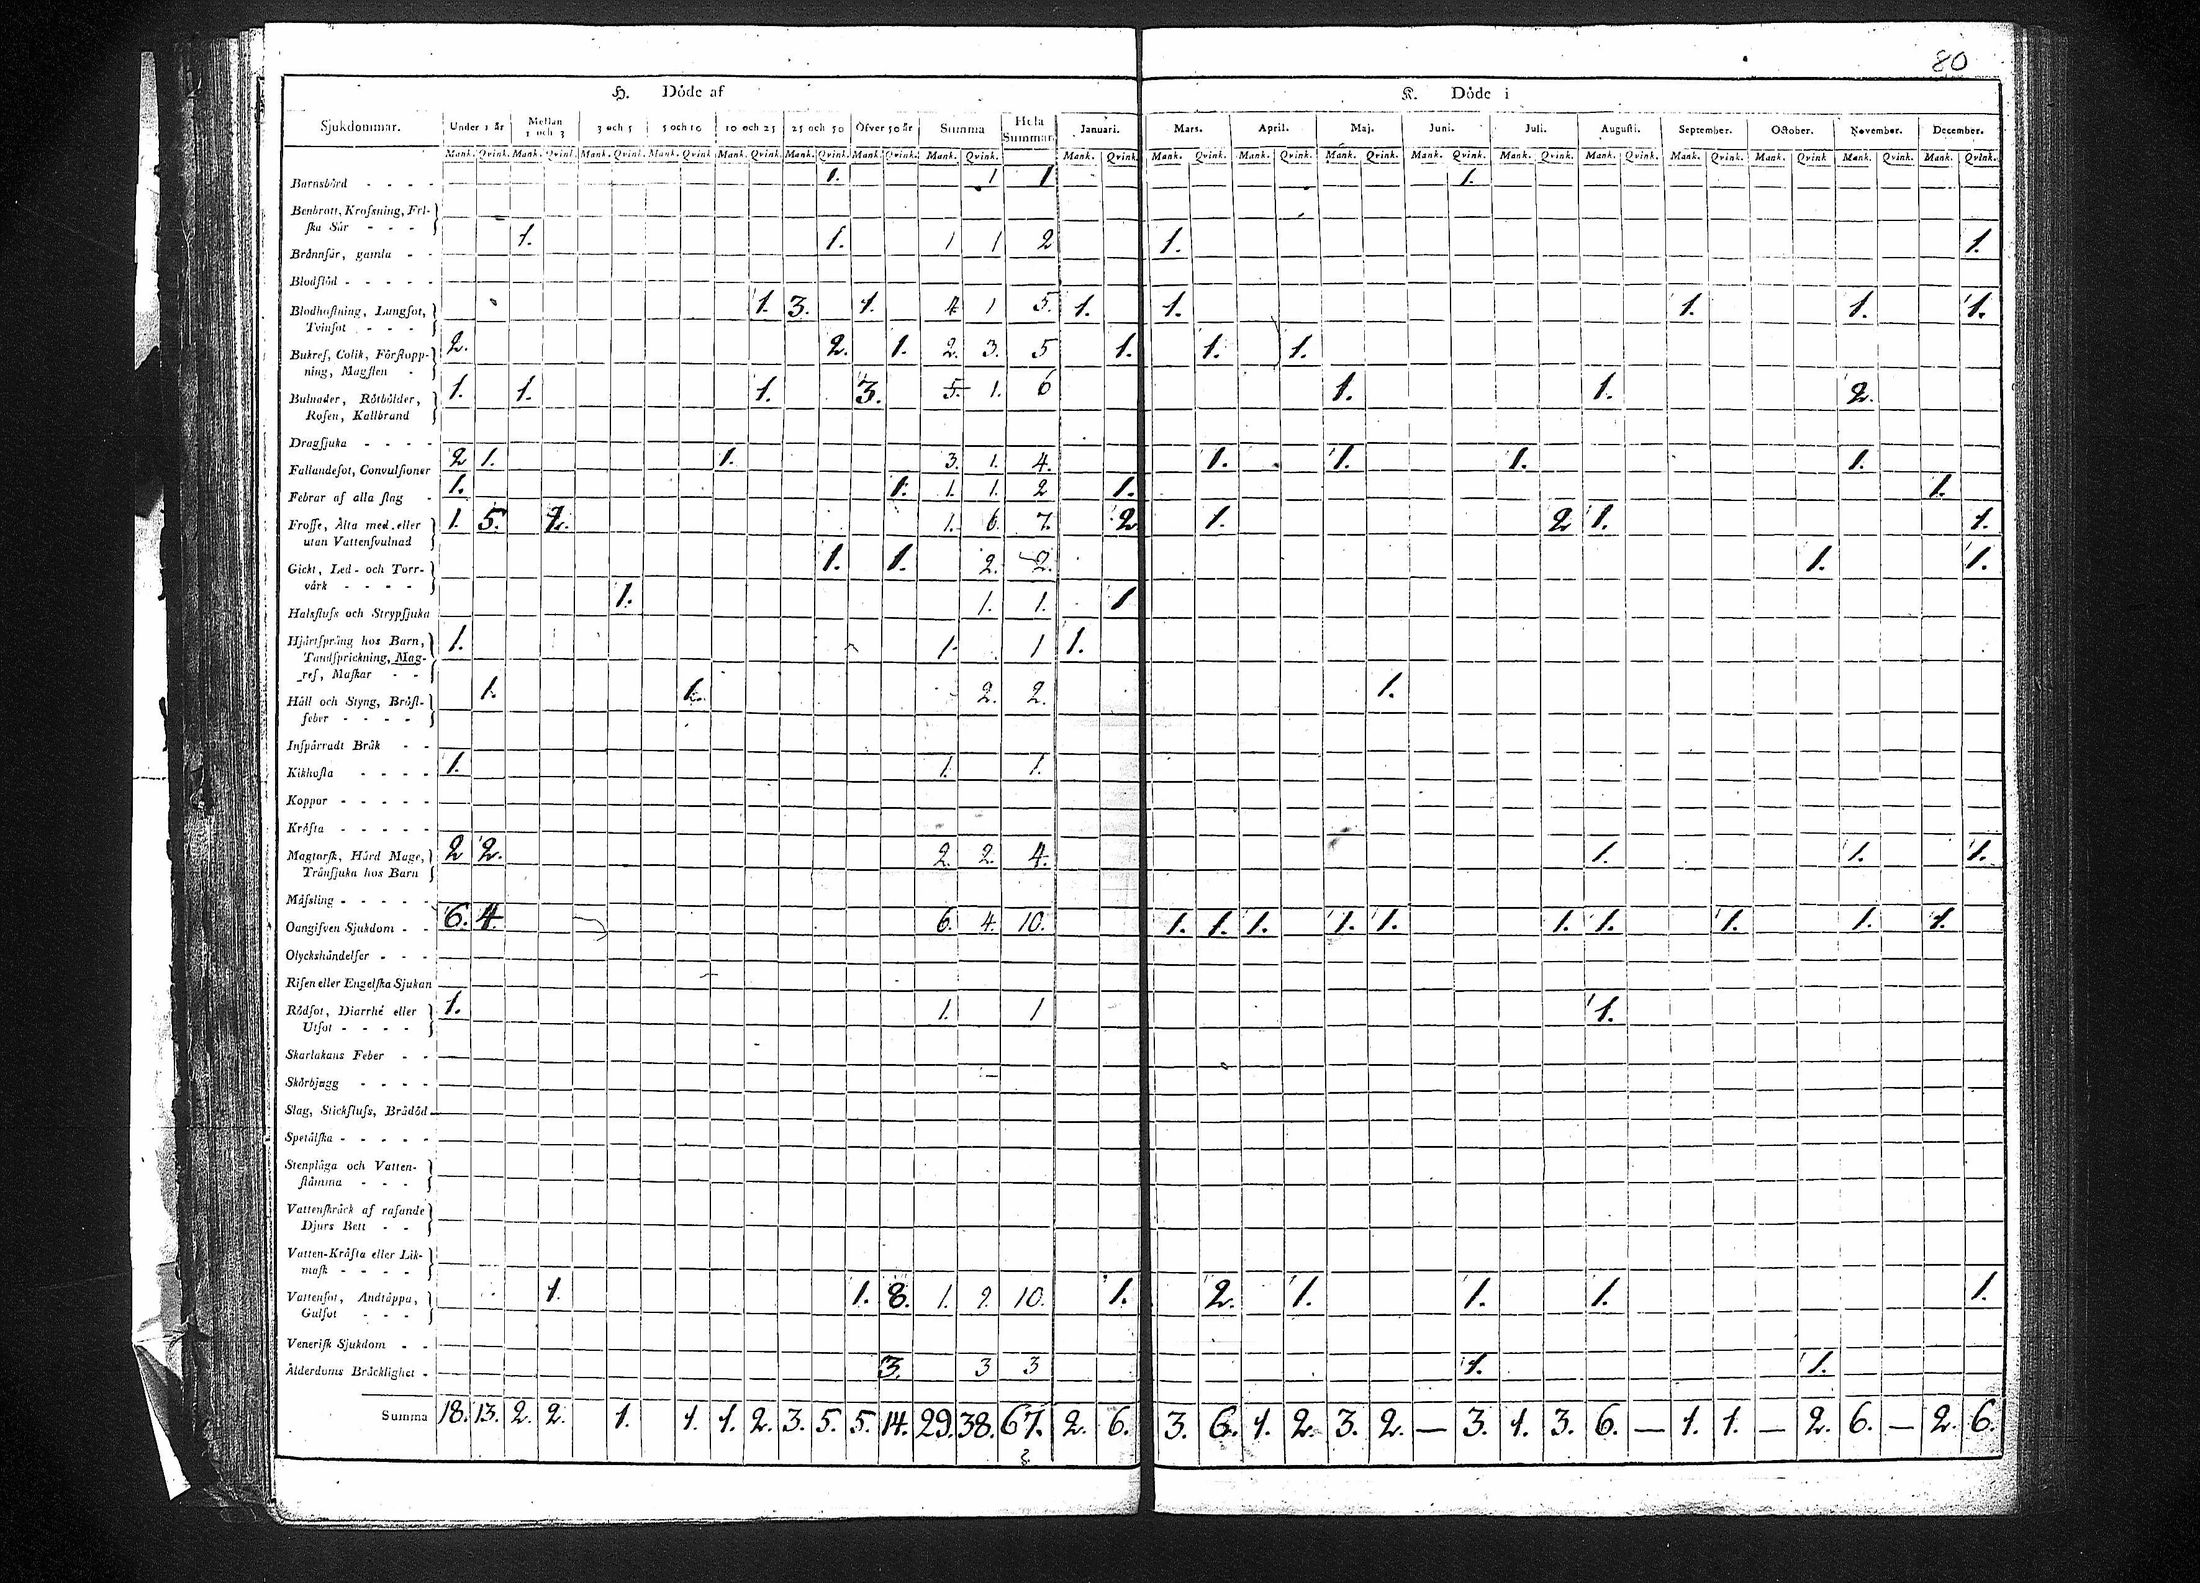 80
H. Döde af
K. Döde i
Sjukdommar. Under 1 år Mellan 1 och 3 3 och 5 5 och 10 10 och 25 25 och 50 Öfver 50 år Summa Hela Summan. Januari. Mars. April. Maj. Juni. Juli. Augusti. September. October. November. December.
Mank. Qvink. Mank. Qvink. Mank. Qvink. Mank. Qvink. Mank. Qvink. Mank. Qvink. Mank. Qvink. Mank. Qvink. Mank. Qvink. Mank. Qvink. Mank. Qvink. Mank. Qvink. Mank. Qvink. Mank. Qvink. Mank. Qvink. Mank. Qvink. Mank. Qvink. Mank. Qvink. Mank. Qvink.
Barnsbörd - - - - 1. 1 1 1.
Benbrott, Kroſsning, Fri-
ſka Sår - - -
Brånnſår, gamla - - 1. 1. 1 1 2 1. 1.
Blodflöd - - - - -
Blodhoſtning, Lungſot, 1. 3. 1. 4. 1 5. 1. 1. 1. 1. 1.
Tvinſot - - -
Bukref, Colik, Förſtopp- 2. 2. 1. 2. 3. 5 1. 1. 1.
ning, Magſten -
Bulnader, Rötbölder, 1. 1. 1. 3. 5. 1. 6 1. 1. 2.
Roſen, Kallbrand
Dragſjuka - - - -
Fallandeſot, Convulſioner 2 1. 1. 3. 1. 4. 1. 1. 1. 1.
Febrar af alla ſlag - 1. 1. 1. 1. 2 1. 1.
Froſſe, Älta med eller 1. 5. 1. 1. 6. 7. 2 1. 2 1. 1.
utan Vattenſvulnad
Gickt, Led- och Torr- 1. 1. 2. 2. 1. 1.
vårk - - - -
Halsfluſs och Strypſjuka 1. 1. 1. 1
Hjärtſpräng hos Barn, 1. 1. 1 1.
Tandſprickning, Mag-
ref, Maſkar - -
Håll och Styng, Bröſt- 1. 1. 2. 2. 1.
feber - - - -
Inſpårradt Bråk - -
Kikhoſta - - - - 1. 1. 1.
Koppor - - - - -
Kräfta - - - - -
Magtorſk, Hård Mage, 2 2. 2. 2. 4. 1. 1. 1.
Tränſjuka hos Barn
Måſsling - - - - -
Oangifven Sjukdom - - 6. 4. 6. 4. 10. 1. 1. 1. 1. 1. 1. 1. 1. 1. 1.
Olyckshändelſer - - -
Riſen eller Engelſka Sjukan
Rödſot, Diarrhé eller 1. 1. 1 1.
Utſot - - - -
Skarlakans Feber - -
Skörbjugg - - - -
Slag, Stickfluſs, Brådöd
Spetälſka - - - - -
Stenplåga och Vatten-
ſtämma - - -
Vattenſkräck af raſande
Djurs Bett - -
Vatten-Kräfta eller Lik-
maſk - - - -
Vattenſot, Andtäppa, 1. 1. 8. 1. 9. 10. 1. 2. 1. 1. 1. 1.
Gulſot - - -
Veneriſk Sjukdom - -
Ålderdoms Bräcklighet - 3. 3 3 1. 1.
Summa 18. 13. 2. 2. 1. 1. 1. 2. 3. 5. 5. 14. 29. 38. 67. 2. 6. 3. 6. 1. 2. 3. 2. — 3. 1. 3. 6. — 1. 1. — 2. 6. — 2. 6.